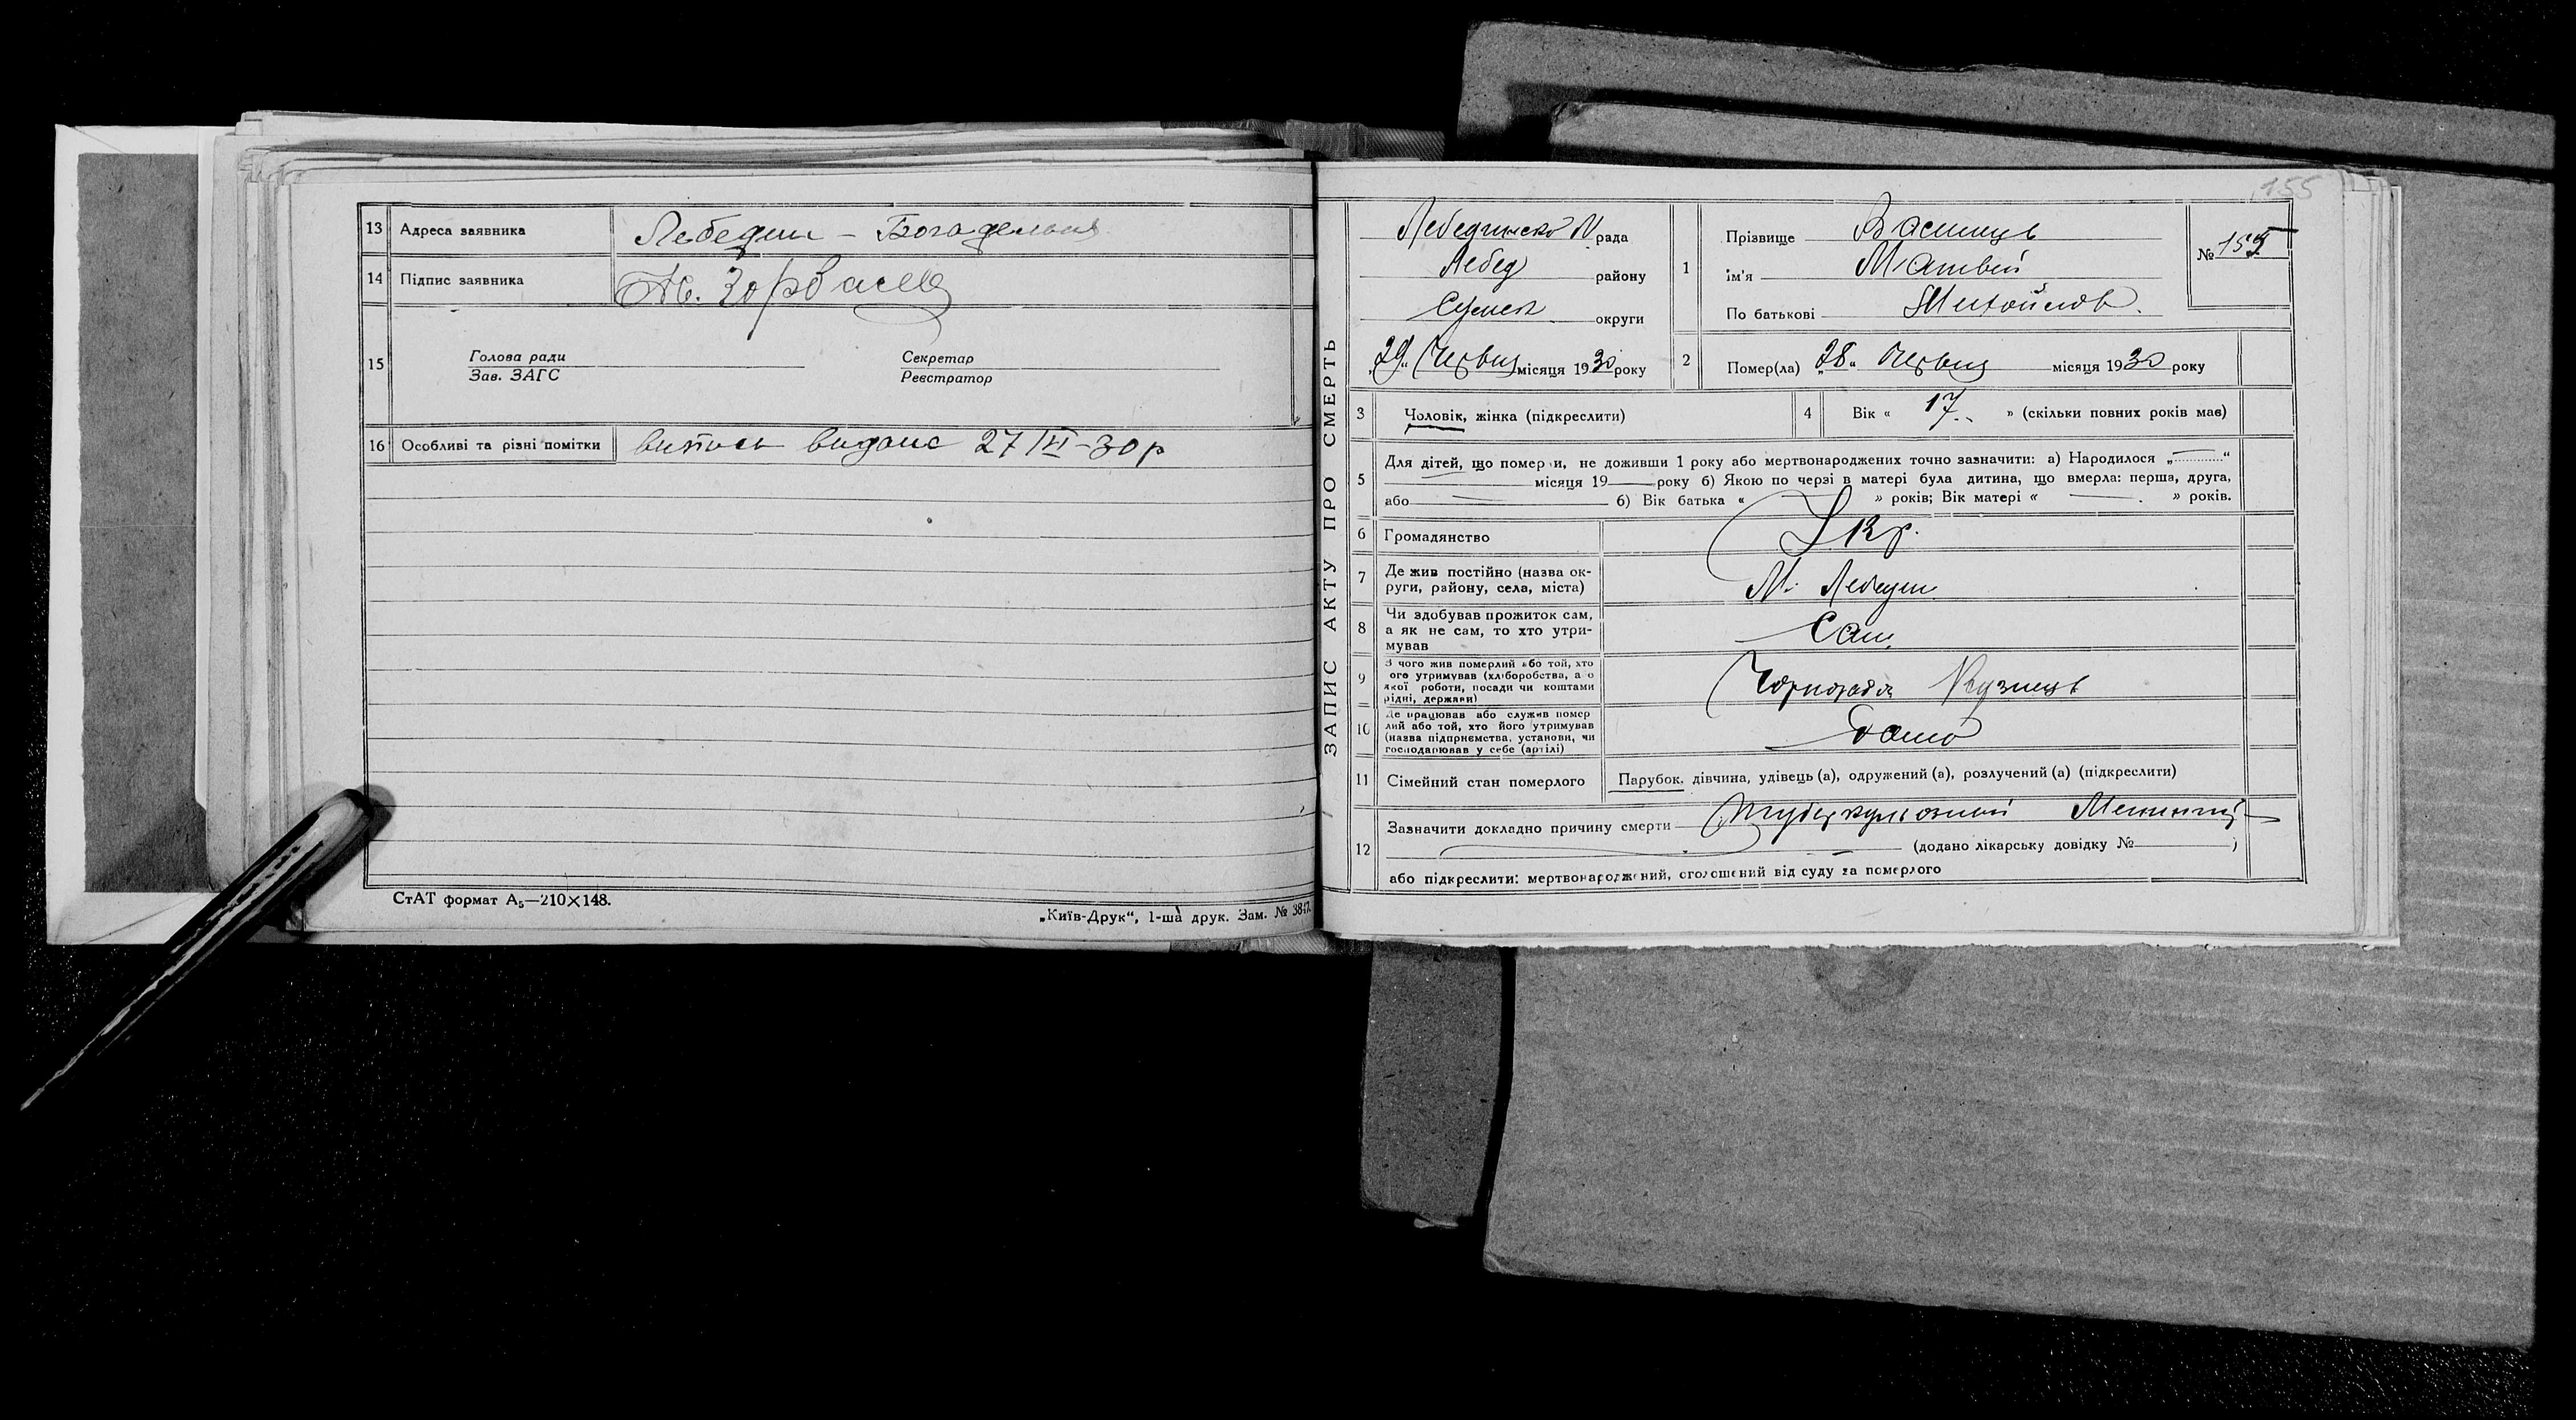 13 Адреса заявника Лебедин – Богадельня
14 Підпис заявника
15 Голова ради Секретар
Зав. ЗАГС Реєстратор
16 Особливі та різні помітки випись видана 27/VI–30 р
СтАТ формат А₅—210×148.
„Київ-Друк“, 1-ша друк. Зам. № 3847.
155
ЗАПИС АКТУ ПРО СМЕРТЬ
рада
Лебед району
Сумск округи
„29“ Червня місяця 1930 року
1 Прізвище
Ім'я Матвей
По батькові Михайлов.
№ 155
2 Помер(ла) „28“ Червня місяця 1930 року
3 Чоловік, жінка (підкреслити)
4 Вік « 17 » (скільки повних років має)
5 Для дітей, що померли, не доживши 1 року або мертвонароджених точно зазначити: а) Народилося „ “
місяця 19 року б) Якою по черзі в матері була дитина, що вмерла: перша, друга,
або б) Вік батька « » років; Вік матері « » років.
6 Громадянство Укр.
7 Де жив постійно (назва округи, району, села, міста) М. Лебедин
8 Чи здобував прожиток сам,
а як не сам, то хто утримував Сам
9 З чого жив померлий або той, хто
ого утримував (хліборобства, а о
якої роботи, посади чи коштами
рідні, держави) Чорнороб Кузнець
10 Де працював або служив помер
лий або той, хто його утримував
(назва підприємства, установи, чи
господарював у себе (артілі)
11 Сімейний стан померлого Парубок, дівчина, удівець (а), одружений (а), розлучений (а) (підкреслити)
12 Зазначити докладно причину смерти Туберкульозний Менингіт
(додано лікарську довідку № )
або підкреслити: мертвонароджений, оголошений від суду за померлого